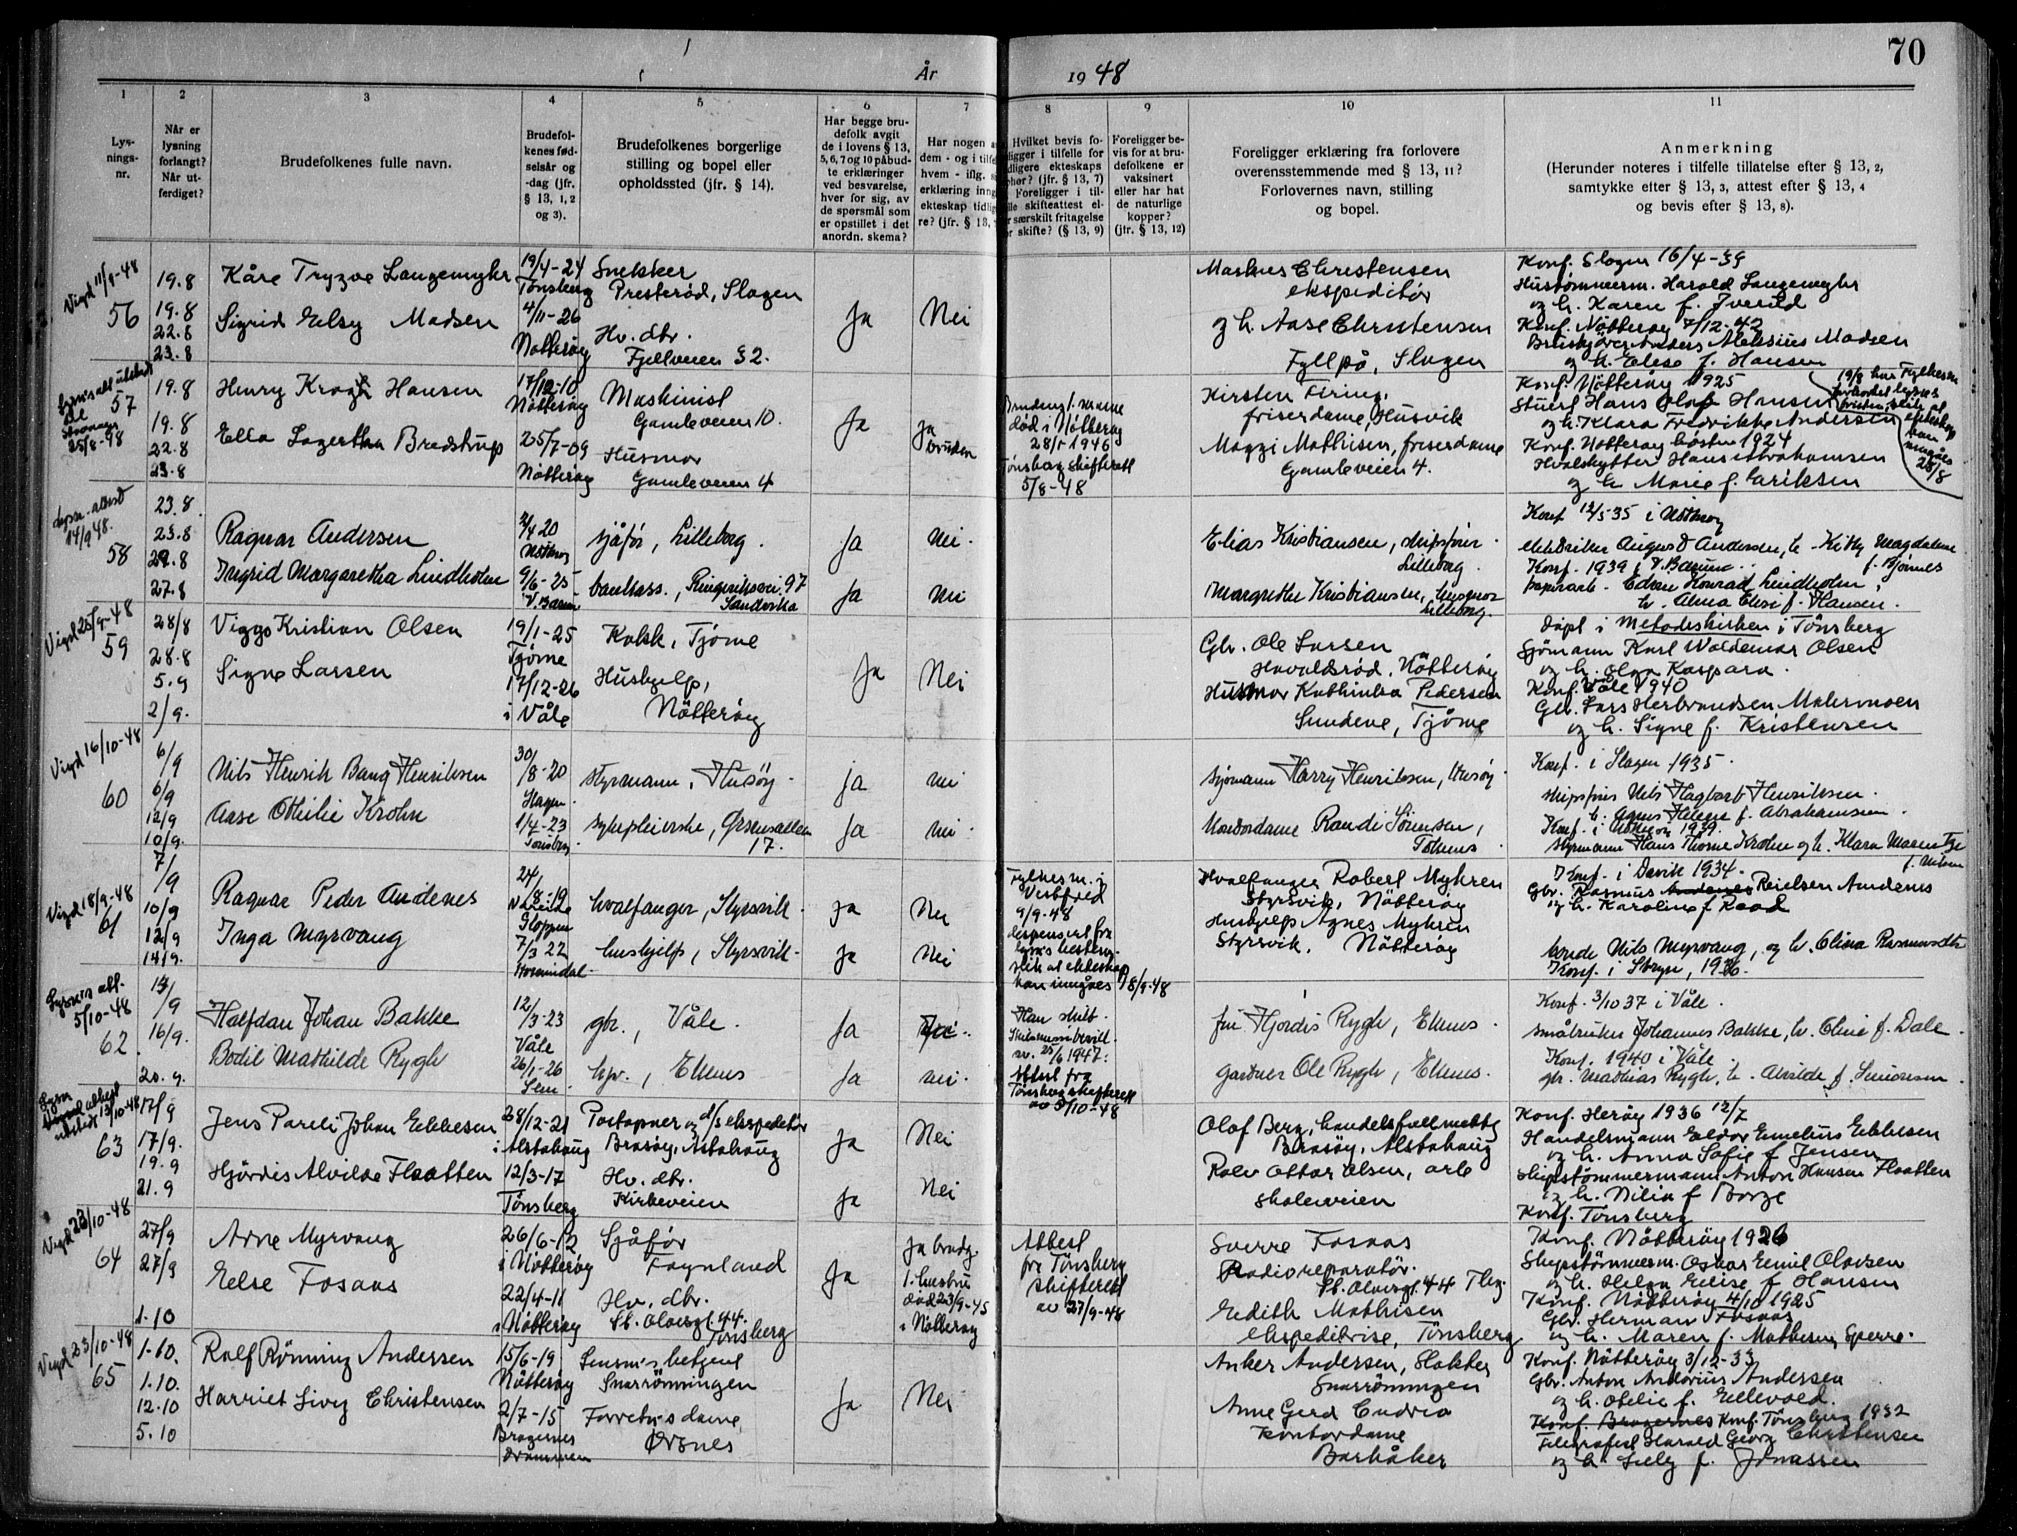 År 1948
70
1
2
3
4
5
6
7
8
9
10
11
Lysnings-nr.
Når er lysning forlangt? Når utferdiget?
Brudefolkenes fulle navn.
Brudefolkenes fødselsår og -dag (jfr. § 13, 1, 2 og 3).
Brudefolkenes borgerlige stilling og bopel eller opholdssted (jfr. § 14).
Har begge brudefolk avgit de i lovens § 13, 5, 6, 7 og 10 påbudte erklæringer ved besvarelse, hver for sig, av de spørsmål som er opstillet i det anordn. skema?
Har nogen a
dem - og i tilfe
hvem - iflg. s
erklæring inng
ekteskap tidlig
re? (jfr. § 13,
Hvilket bevis fo-
ligger i tilfelle for
dligere ekteskaps
phør? (jfr. § 13, 7)
Foreligger i til-
lle skifteattest el-
r særskilt fritagelse
r skifte? (§ 13, 9)
Foreligger bevis for at brudefolkene er vaksinert eller har hat de naturlige kopper? (jfr. § 13, 12)
Foreligger erklæring fra forlovere overensstemmende med § 13, 11? Forlovernes navn, stilling og bopel.
Anmerkning
(Herunder noteres i tilfelle tillatelse efter § 13, 2, samtykke efter § 13, 3, attest efter § 13, 4 og bevis efter § 13, 8).
Vigd 11/9-48
56
19.8
19.8
22.8
23.8
Kåre Trygve Langemyhr
Sigrid Elsy Madsen
19/4-24
Tønsberg
4/11-26
Nøtterøy
Snekker
Presterød, Slagen
Hv. dtr.
Fjellveien 32.
Ja
Nei
Markus Christensen
ekspeditør
og h. Aase Christensen
Fyllpå, Slagen
Konf. Slagen 16/4-39
Hustømmerm. Harald Langemyhr
og h. Karen f.
Konf. Nøtterøy 7/12-42
Anders Aleksius Madsen
og h. Elise f. Hansen
25/8-48
57
19.8
19.8
22.8
23.8
Henry Krogh Hansen
Ella Lagertha Bredstrup
17/12-10
Nøtterøy
25/7-09
Nøtterøy
Maskinist
Gamleveien 10.
Husmor
Gamleveien 4
Ja
Ja
bruden
død i Nøtterøy
1946
Tønsberg skifterett
5/8-48
Kirsten Firing,
friserdame, Husvik
Maggi Mathisen, friserdame
Gamleveien 4.
Konf. Nøtterøy 1925
Stuert Hans Olaf Hansen
og h. Klara Fredrikke Andersen
Konf. Nøtterøy høsten 1924
Hvalskytter Hans Abrahamsen
og h. Marie f. Eriksen
14/9 48.
58
23.8
23.8
29.8
27.8
Ragnar Andersen
Ingrid Margaretha Lindholm
Nøtterøy
9/6-25
V. Bærum
sjåfør, Lilleborg.
bankass., Ringeriksvei. 97
Sandvika
Ja
Nei.
Ja
Nei
Elias Kristiansen, skipsfører
Lilleborg.
Margrethe Kristiansen, husmor
Lilleborg.
Konf 12/5 35 i Nøtterøy
elektriker August Andersen, h. Kitty Magdalene
f. Bjønnes
Konf. 1939 i V. Bærum
papirarb. Edvin Konrad Lindholm
h. Alma Elise f. Hansen.
Vigd 25/9-48
59
28/8
28.8
5.9
2/9.
Viggo Kristian Olsen
Signe Larsen
19/1-25
Tjøme
17/12-26
i Våle
Kokk, Tjøme
Hushjelp,
Nøtterøy
Ja
Nei
Gbr. Ole Larsen
Havaldsrød, Nøtterøy
Husmor Kathinka Pedersen
Sundene, Tjøme
Døpt i Metodistkirken i Tønsberg
Sjømann Karl Waldemar Olsen
og h. Olga Kaspara.
Konf. Våle 1940
Gbr. Lars Herbrandsen Malermoen
og h. Signe f. Kristensen
Vigd 16/10-48
60
6/9
6/9
12/9
10/9.
Nils Henrik Bang Henriksen
Aase Othilie Krohn
30/8-20
Slagen
1/7-23
Tønsberg
styrmann, Husøy
sykepleierske,
17.
Ja
nei
Ja
nei.
sjømann Harry Henriksen, Husøy
Kontordame Randi Sørensen,
Konf. i Slagen 1935.
skipsfører Nils Hagbart Henriksen.
h. Agnes Helene f. Abrahamsen.
Konf. i Nøtterøy 1939.
styrmann Hans Thorne Krohn og h. Klara Maren
f. Nilsen
Vigd 18/9-48
61
7/9
10/9
12/9
14/9.
Ragnar Peder Andenes
Inga Myrvang
24/8-19
Gloppen
7/3 22
Hornindal
hvalfanger, Styrsvik.
hushjelp, Styrsvik.
Ja
Nei
Ja
Nei
Fylkesm. i
Vestfold
9/9-48
dispensert fra
slik at ekteskap
kan inngåes 18/9-48
Hvalfanger Robert Myhren
Styrsvik, Nøtterøy
Hushjelp Agnes Myhren
Styrsvik. Nøtterøy
Konf. i Davik 1934.
Gbr. Rasmus Reielsen Andenes
og h. Karoline f Raad
Nils Myrvang, og h. Elina Rasmusdtr
Konf. i Stryn, 1936.
Lysn's att.
5/10-48
62.
13/9
16/9.
20.9.
Halfdan Johan Bakke
Bodil Mathilde Rygh
12/3-23
Våle
26/1-26
Sem
gbr., Våle.
hpr., Ekenes
Ja
Ja
nei.
Han skilt.
av 25/6 1947.
Attest fra
Tønsberg skifterett
av 5/10-48
frk Hjørdis Rygh, Ekenes.
gartner Ole Rygh, Ekenes.
Konf. 3/10 37 i Våle.
småbruker Johannes Bakke, h. Oline f. Dale.
Konf. 1940 i Våle
gbr. Mathias Rygh, h. Alvilde f. Simonsen.
Lysn
utstedt 13/10-48
63
17/9
17/9.
19.9
21.9
Jens Pareli Johan Ebbesen
Hjørdis Alvilde Flaatten
28/12-21
i Alstahaug
12/3-17
Tønsberg
Poståpner og d/s ekspeditør
Brasøy, Alstahaug
Hv. dtr.
Kirkeveien
Ja
Nei
Ja
Nei
Olaf Berg, handelsfullmektig
Brasøy, Alstahaug
Rolv Ottar Olsen, arb
Skoleveien
Konf. Herøy 1936 12/7
Handelsmann Eldor Emelius Ebbesen
og h. Anna Sofie f Jensen
skipstømmermann Anton Hansen Flaatten
og h. Nilia f Borge
Konf. Tønsberg
Vigd 23/10-48
64
27/9
27/9
1.10
Arne Myrvang
Else Fosaas
26/6-12
i Nøtterøy
22/4-11
i Nøtterøy
Sjåfør
Føynland
Hv. dtr.
St. Olavsgt. 44.
Tønsberg
Ja
Ja brudg.
1. hustru
død 23/9-45
i Nøtterøy
Attest
fra Tønsberg
skifterett
av 27/9-48
Sverre Fosaas
Radioreparatør.
St. Olavsgt. 44 Tbg.
Edith Mathisen
ekspeditrise, Tønsberg
Konf. Nøtterøy 1926
Skipstømmerm. Oskar Emil Olavsen
og h. Helga Elise f Hansen
Konf. Nøtterøy 4/10 1925
Gbr. Herman Fosaas
og h. Maren f. Mathisen, Sperre.
Vigd 23/10-48
65
1-10.
1.10.
12.10
5.10
Rolf Rønning Andersen
Harriet Livy Christensen
15/6-19
Nøtterøy
2/7-15
Bragernes
Drammen
Snarrønningen
Forretn's dame,
Ørsnes
Ja
Nei
Anker Andersen, Slakter
Snarrønningen
Anne Gerd Endrea
Kontordame
Barkåker
Konf. Nøtterøy 3/12-33
Gbr. Anton Andorius Andersen
og h. Otelie f. Ellevold.
Konf. Bragernes Konf. Tønsberg 1932
Telegrafist Harald Georg Christensen
og h. Lilly f. Jonassen